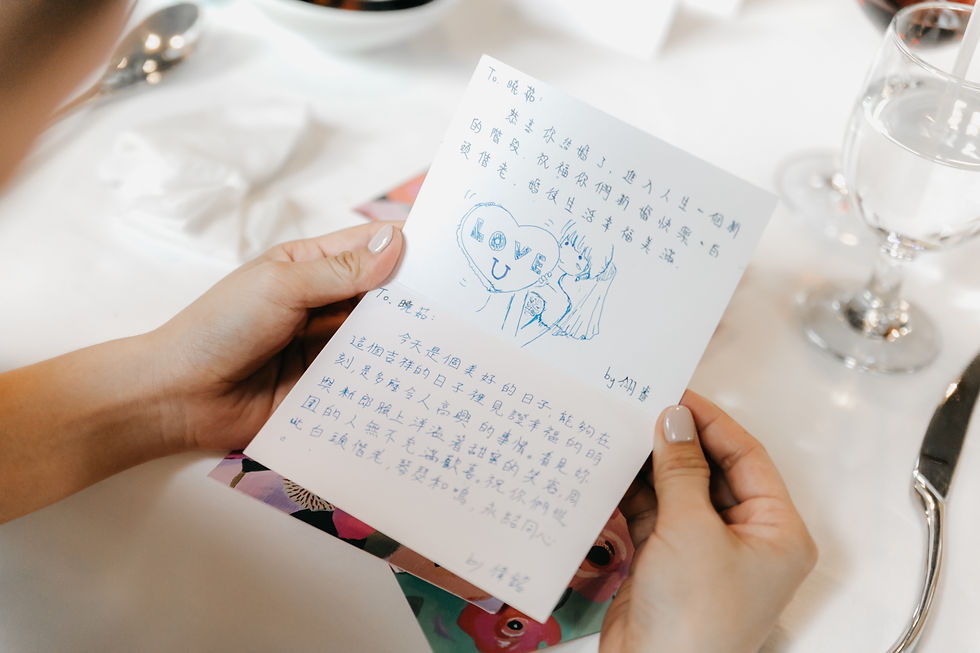 To. 曉茹:
恭喜你結婚了, 進入人生一個新
的階段. 祝福你們新婚快樂、白
頭偕老. 婚後生活幸福美滿.
LOVE
U
by 
To. 曉茹:
今天是個美好的日子, 能夠在
這個吉祥的日子裡見證幸福的時
刻, 是多麼令人高興的事情。看見妳
與新郎臉上洋溢著甜蜜的笑容, 周
圍的人無不充滿歡喜。祝你們從
此白頭偕老, 琴瑟和鳴, 永結同心
。
by